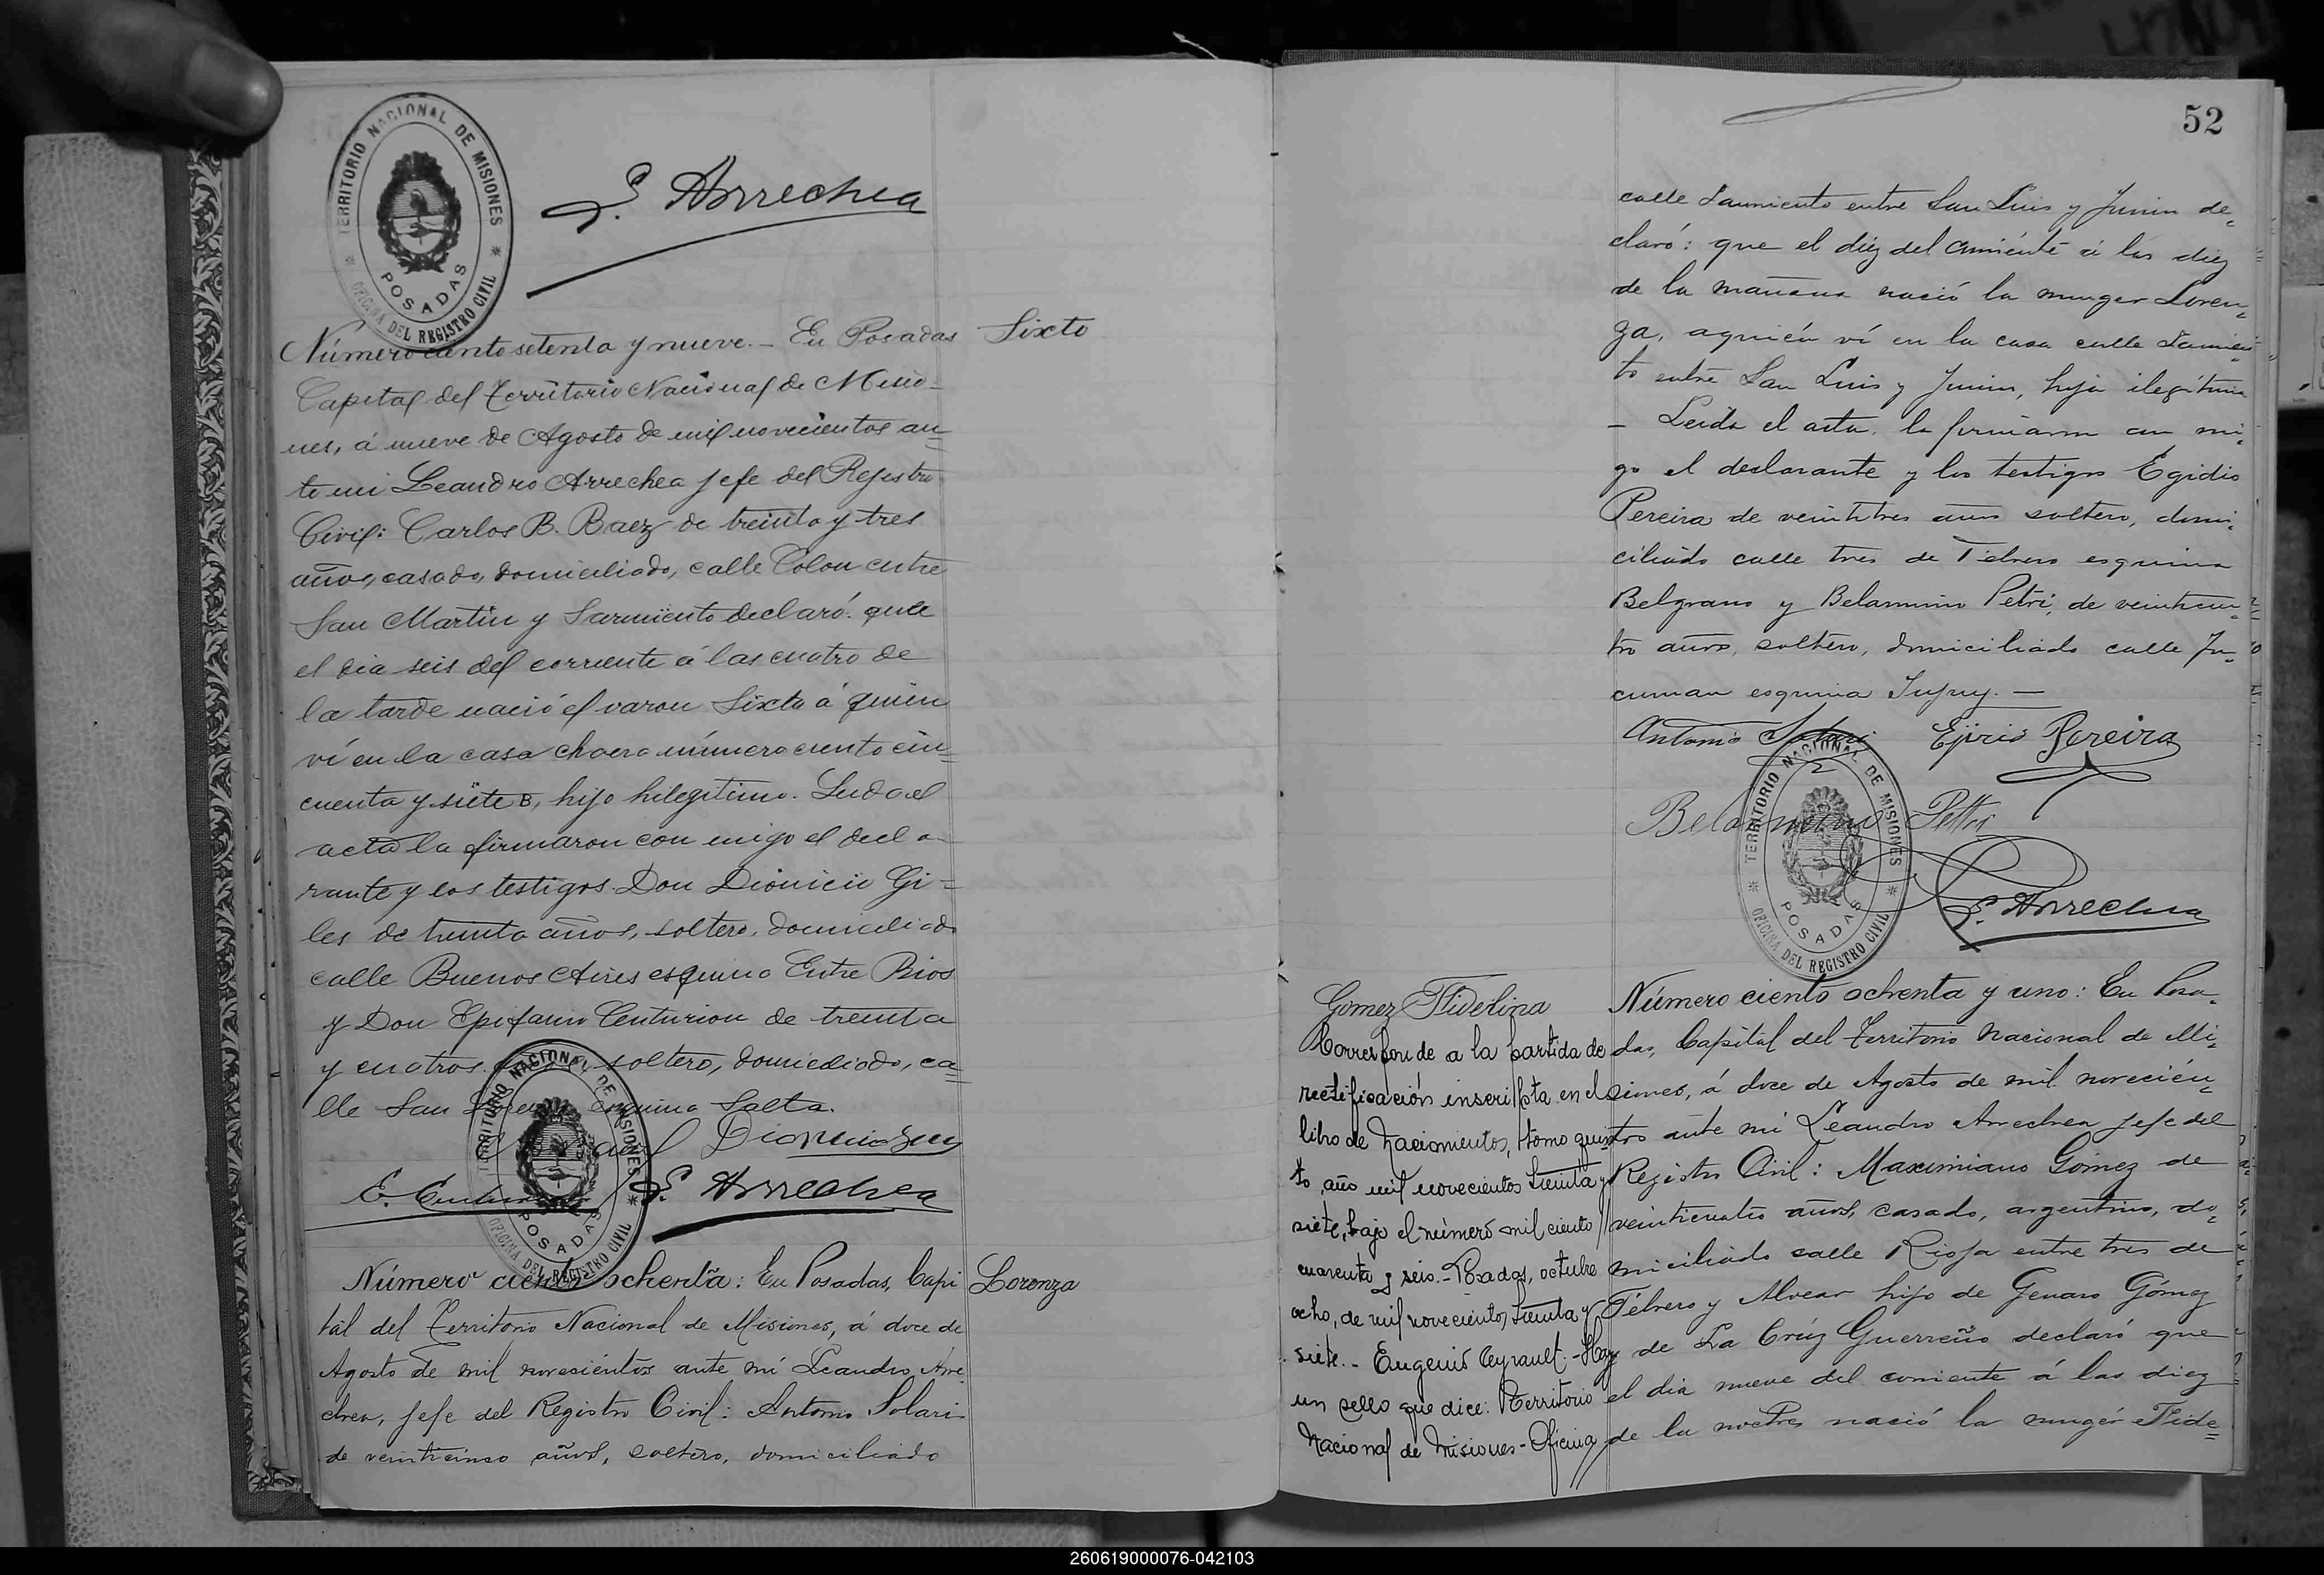 TERRITORIO NACIONAL DE MISIONES
POSADAS
OFICINA DEL REGISTRO CIVIL
L. Arrechea
Número ciento setenta y nueve.- En Posadas
Sixto
Capital del Territorio Nacional de Misio-
nes, á nueve de Agosto de mil novecientos an-
te mi Leandro Arrechea jefe del Rejistro
Civil: Carlos B. Baez de treinta y tres
años, casado, domiciliado, calle Colon entre
San Martin y Sarmiento declaró: que
el dia seis del corriente á las cuatro de
la tarde nació el varon Sixto á quien
ví en la casa chacra número ciento cin-
cuenta y siete B, hijo hilegitimo. Leido el
acta la firmaron con migo el decla-
rante y los testigos Don Dionicio Gi-
les de treinta años, soltero, domiciliado
calle Buenos Aires esquina Entre Rios
y Don Epifanio Centurion de treinta
y cuatros soltero, domiciliado, ca-
lle San esquina Salta.
E. Centurion
L. Arrechea
TERRITORIO NACIONAL DE MISIONES
POSADAS
OFICINA DEL REGISTRO CIVIL
Número ciento ochenta: En Posadas, Capi
Lorenza
tal del Territorio Nacional de Misiones, á doce de
Agosto de mil novesiéntos ante mí Leandro Arre
chea, jefe del Registro Civil: Antonio Solari
de veinticinco años, soltero, domiciliado
52
calle Sarmiento entre San Luis y Junin de-
claró: que el diez del corriente á las diez
de la mañana nació la muger Loren-
za, aquién ví en la casa calle Sarmien-
to entre San Luis y Junin, hija ilegítima
- Leida el acta, la firmaron con mi-
go el declarante y los testigos Egidio
Pereira de veintitres años soltero, domi-
ciliado calle tres de Febrero esquina
Belgrano y Belarmino Petri, de veinticua-
tro años, soltero, domiciliado calle Tu-
cuman esquina Jujuy. —
Antonio Solari
Ejirio Pereira
Belarmino Petri
TERRITORIO NACIONAL DE MISIONES
POSADAS
OFICINA DEL REGISTRO CIVIL
L. Arrechea
Gomez Fidelina
Corresponde a la partida de
rectificación inscripta en el
libro de Nacimientos, tomo quin-
to, año mil novecientos treinta y
siete, bajo el número mil ciento
cuarenta y seis.- Posadas, octubre
ocho, de mil novecientos treinta y
siete.- Eugenio Peyrault.- Hay
un sello que dice: Territorio
Nacional de Misiones - Oficina
Número ciento ochenta y uno: En Posa-
das, Capital del Territorio Nacional de Mi-
siones, á doce de Agosto de mil novecién-
tos ante mi Leandro Arrechea jefe del
Registro Civil: Maximiano Gómez de
veinticuatro años, casado, argentino, do-
miciliado calle Rioja entre tres de
Febrero y Alvear hijo de Genaro Gómez
y de La Crúz Guerreño declaró que
el dia nueve del corriente á las diez
de la noche nació la mugér Fide-
260619000076-042103